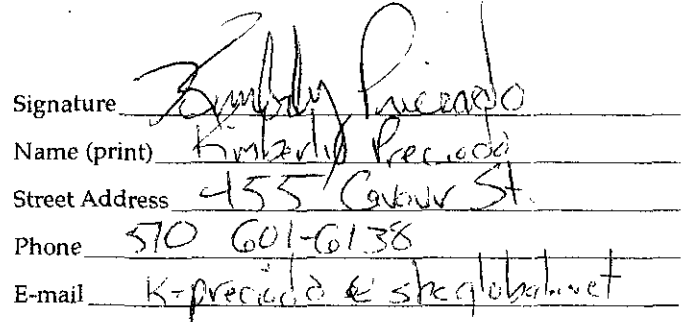 Signature Kimberly Preciado
Name (print) Kimberly Preciado
Street Address 455 Cavour St.
Phone 510 601-6138
E-mail K-preciado@sbcglobal.net